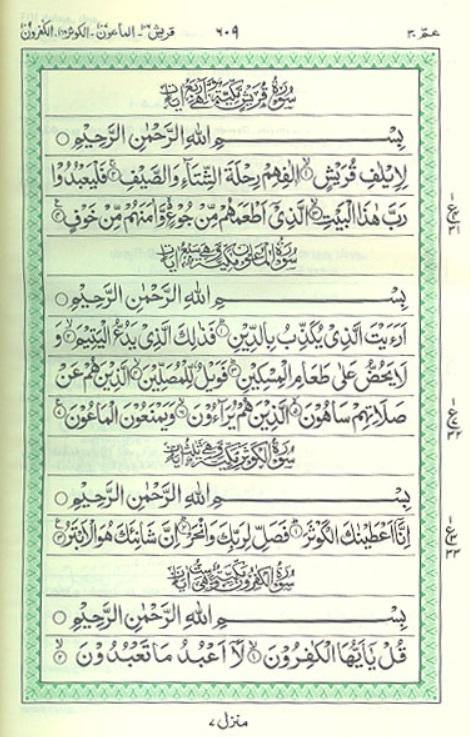 عمّ ٣٠ ٦٠٩ قريش ١٠٦ - الماعون ١٠٧ - الكوثر ١٠٨ - الكفرون ١٠٩
سُوْرَةُ قُرَيْشٍ مَّكِّيَّةٌ وَّهِيَ اَرْبَعُ اٰيَاتٍ
بِسْــــــمِ اللهِ الرَّحْمٰنِ الرَّحِيْمِ ○
لِاِيْلٰفِ قُرَيْشٍ ۙ١ اٖلٰفِهِمْ رِحْلَةَ الشِّتَآءِ وَالصَّيْفِ ۚ٢ فَلْيَعْبُدُوْا
رَبَّ هٰذَا الْبَيْتِ ۙ٣ الَّذِيْٓ اَطْعَمَهُمْ مِّنْ جُوْعٍ وَّاٰمَنَهُمْ مِّنْ خَوْفٍ ۠٤
سُوْرَةُ الْمَاعُوْنِ مَكِّيَّةٌ وَّهِيَ سَبْعُ اٰيَاتٍ
بِسْــــــمِ اللهِ الرَّحْمٰنِ الرَّحِيْمِ ○
اَرَءَيْتَ الَّذِيْ يُكَذِّبُ بِالدِّيْنِ ۭ١ فَذٰلِكَ الَّذِيْ يَدُعُّ الْيَتِيْمَ ۙ٢ وَ
لَا يَحُضُّ عَلٰى طَعَامِ الْمِسْكِيْنِ ۭ٣ فَوَيْلٌ لِّلْمُصَلِّيْنَ ۙ٤ الَّذِيْنَ هُمْ عَنْ
صَلَاتِهِمْ سَاهُوْنَ ۙ٥ الَّذِيْنَ هُمْ يُرَآءُوْنَ ۙ٦ وَيَمْنَعُوْنَ الْمَاعُوْنَ ۠٧
سُوْرَةُ الْكَوْثَرِ مَكِّيَّةٌ وَّهِيَ ثَلٰثُ اٰيَاتٍ
بِسْــــــمِ اللهِ الرَّحْمٰنِ الرَّحِيْمِ ○
اِنَّآ اَعْطَيْنٰكَ الْكَوْثَرَ ۭ١ فَصَلِّ لِرَبِّكَ وَانْحَرْ ۭ٢ اِنَّ شَانِئَكَ هُوَ الْاَبْتَرُ ۠٣
سُوْرَةُ الْكٰفِرُوْنَ مَكِّيَّةٌ وَّهِيَ سِتُّ اٰيَاتٍ
بِسْــــــمِ اللهِ الرَّحْمٰنِ الرَّحِيْمِ ○
قُلْ يٰٓاَيُّهَا الْكٰفِرُوْنَ ۙ١ لَآ اَعْبُدُ مَا تَعْبُدُوْنَ ۙ٢
منزل ٧